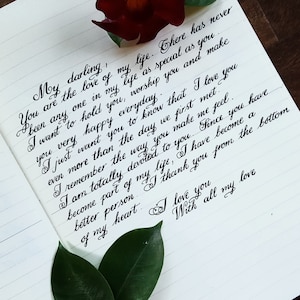 My darling,
You are the love of my life. There has never
been any one in my life as special as you.
I want to hold you, worship you and make
you very happy everyday.
I just want you to know that I love you
even more than the day we first met.
I remember the way you make me feel.
I am totally devoted to you. Since you have
become part of my life, I have become a
better person. I thank you from the bottom
of my heart. I love you
With all my love